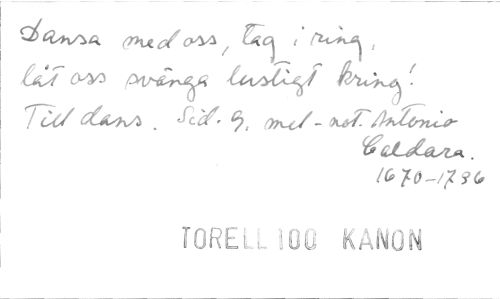 Dansa med oss, tag i ring,
låt oss svänga lustigt kring!
Till dans. Sid. 9, mel-not. Antonio
Caldara.
1670-1736
TORELL 100 KANON